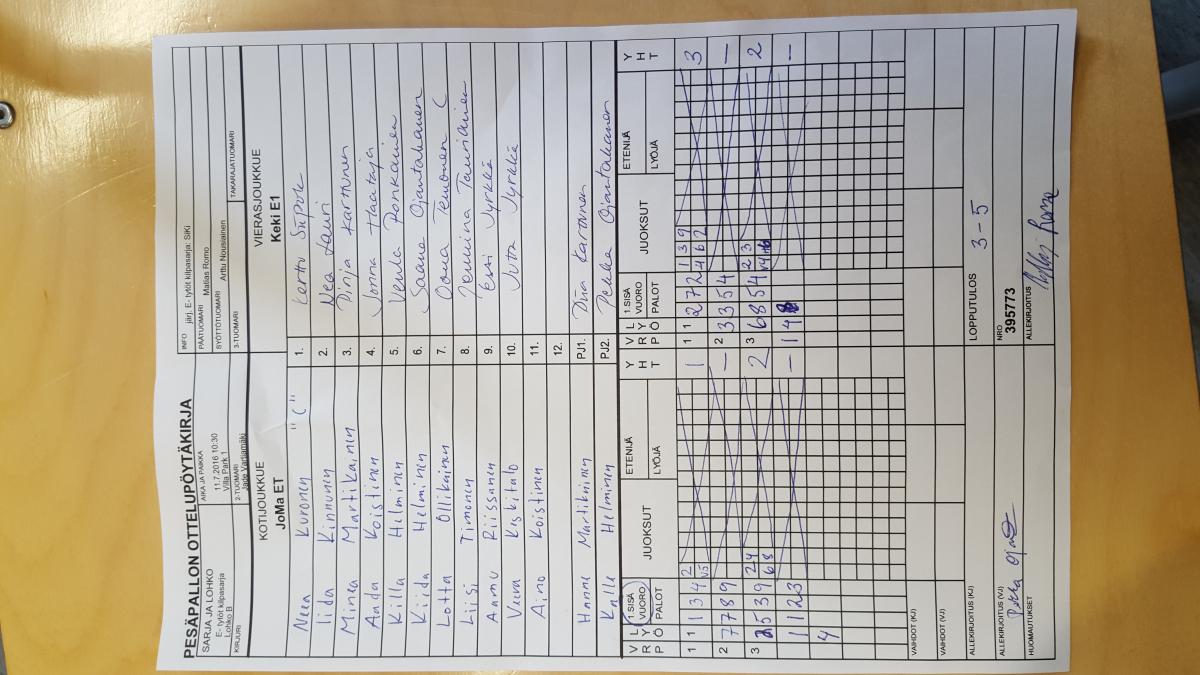 PESÄPALLON OTTELUPÖYTÄKIRJA
SARJA JA LOHKO
E- tytöt kilpasarja
Lohko B
AIKA JA PAIKKA
11.7.2016 10:30
Villa Park 1
INFO järj. E- tytöt kilpasarja: SiKi
PÄÄTUOMARI Matias Romo
SYÖTTÖTUOMARI Arttu Nousiainen
KIRJURI
2-TUOMARI
Jade Vartiamäki
3-TUOMARI
TAKARAJATUOMARI
KOTIJOUKKUE
JoMa ET
VIERASJOUKKUE
Keki E1
Neea Kuronen "C" 1. Kerttu
Iida Kinnunen 2. Nea Lauri
Minea Martikainen 3. Pinja Karvinen
Aada Koistinen 4. Jonna Haataja
Killa Helminen 5. Venla Ronkainen
Kiida Helminen 6. Saana Ojantakanen
Lotta Ollikainen 7. Oona Temonen C
Liisi Timonen 8.
Aamu Riissanen 9. Essi Jyrkkä
Veera Keskitalo 10. Jutta Jyrkkä
Aino Koistinen 11.
12.
Hanne Martikainen PJ1.
Kalle Helminen PJ2. Pekka Ojantakanen
V R P L Y Ö 1.SISÄ VUORO PALOT JUOKSUT ETENIJÄ LYÖJÄ Y H T V R P L Y Ö 1.SISÄ VUORO PALOT JUOKSUT ETENIJÄ LYÖJÄ Y H T
1 1 3 4 2 V5 1 1 2 7 2 1 3 9 4 6 2 3
2 7 7 8 9 — 2 3 3 5 4 —
3 5 3 9 2 4 6 8 2 3 6 8 5 4 2 3 V4 2
1 1 2 3 — 1 4 —
4
VAIHDOT (KJ)
VAIHDOT (VJ)
ALLEKIRJOITUS (KJ)
LOPPUTULOS
3 - 5
ALLEKIRJOITUS (VJ)
Pekka
NRO
395773
HUOMAUTUKSET
ALLEKIRJOITUS